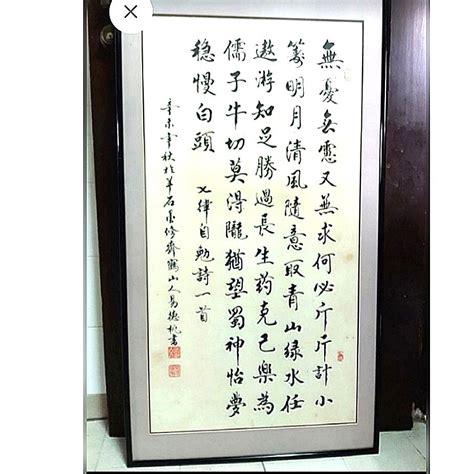 無憂無慮又無求何必斤斤計小
籌明月清風隨意取青山綠水任
遨游知足勝過長生药克己樂為
儒子牛切莫得隴猶望蜀神怡夢
稳慢白頭
七律自勉詩一首
辛未年秋於羊石 修齋鶴山人易德 書